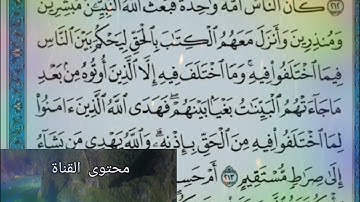 كَانَ النَّاسُ أُمَّةً وَاحِدَةً فَبَعَثَ اللَّهُ النَّبِيِّينَ مُبَشِّرِينَ
وَمُنذِرِينَ وَأَنزَلَ مَعَهُمُ الْكِتَابَ بِالْحَقِّ لِيَحْكُمَ بَيْنَ النَّاسِ
فِيمَا اخْتَلَفُوا فِيهِ وَمَا اخْتَلَفَ فِيهِ إِلَّا الَّذِينَ أُوتُوهُ مِنْ بَعْدِ
مَا جَاءَتْهُمُ الْبَيِّنَاتُ بَغْيًا بَيْنَهُمْ فَهَدَى اللَّهُ الَّذِينَ ءَامَنُوا
لِمَا اخْتَلَفُوا فِيهِ مِنَ الْحَقِّ بِإِذْنِهِ وَاللَّهُ يَهْدِي مَن يَشَاءُ
إِلَى صِرَاطٍ مُّسْتَقِيمٍ ٢١٣ أَمْ
محتوى القناة